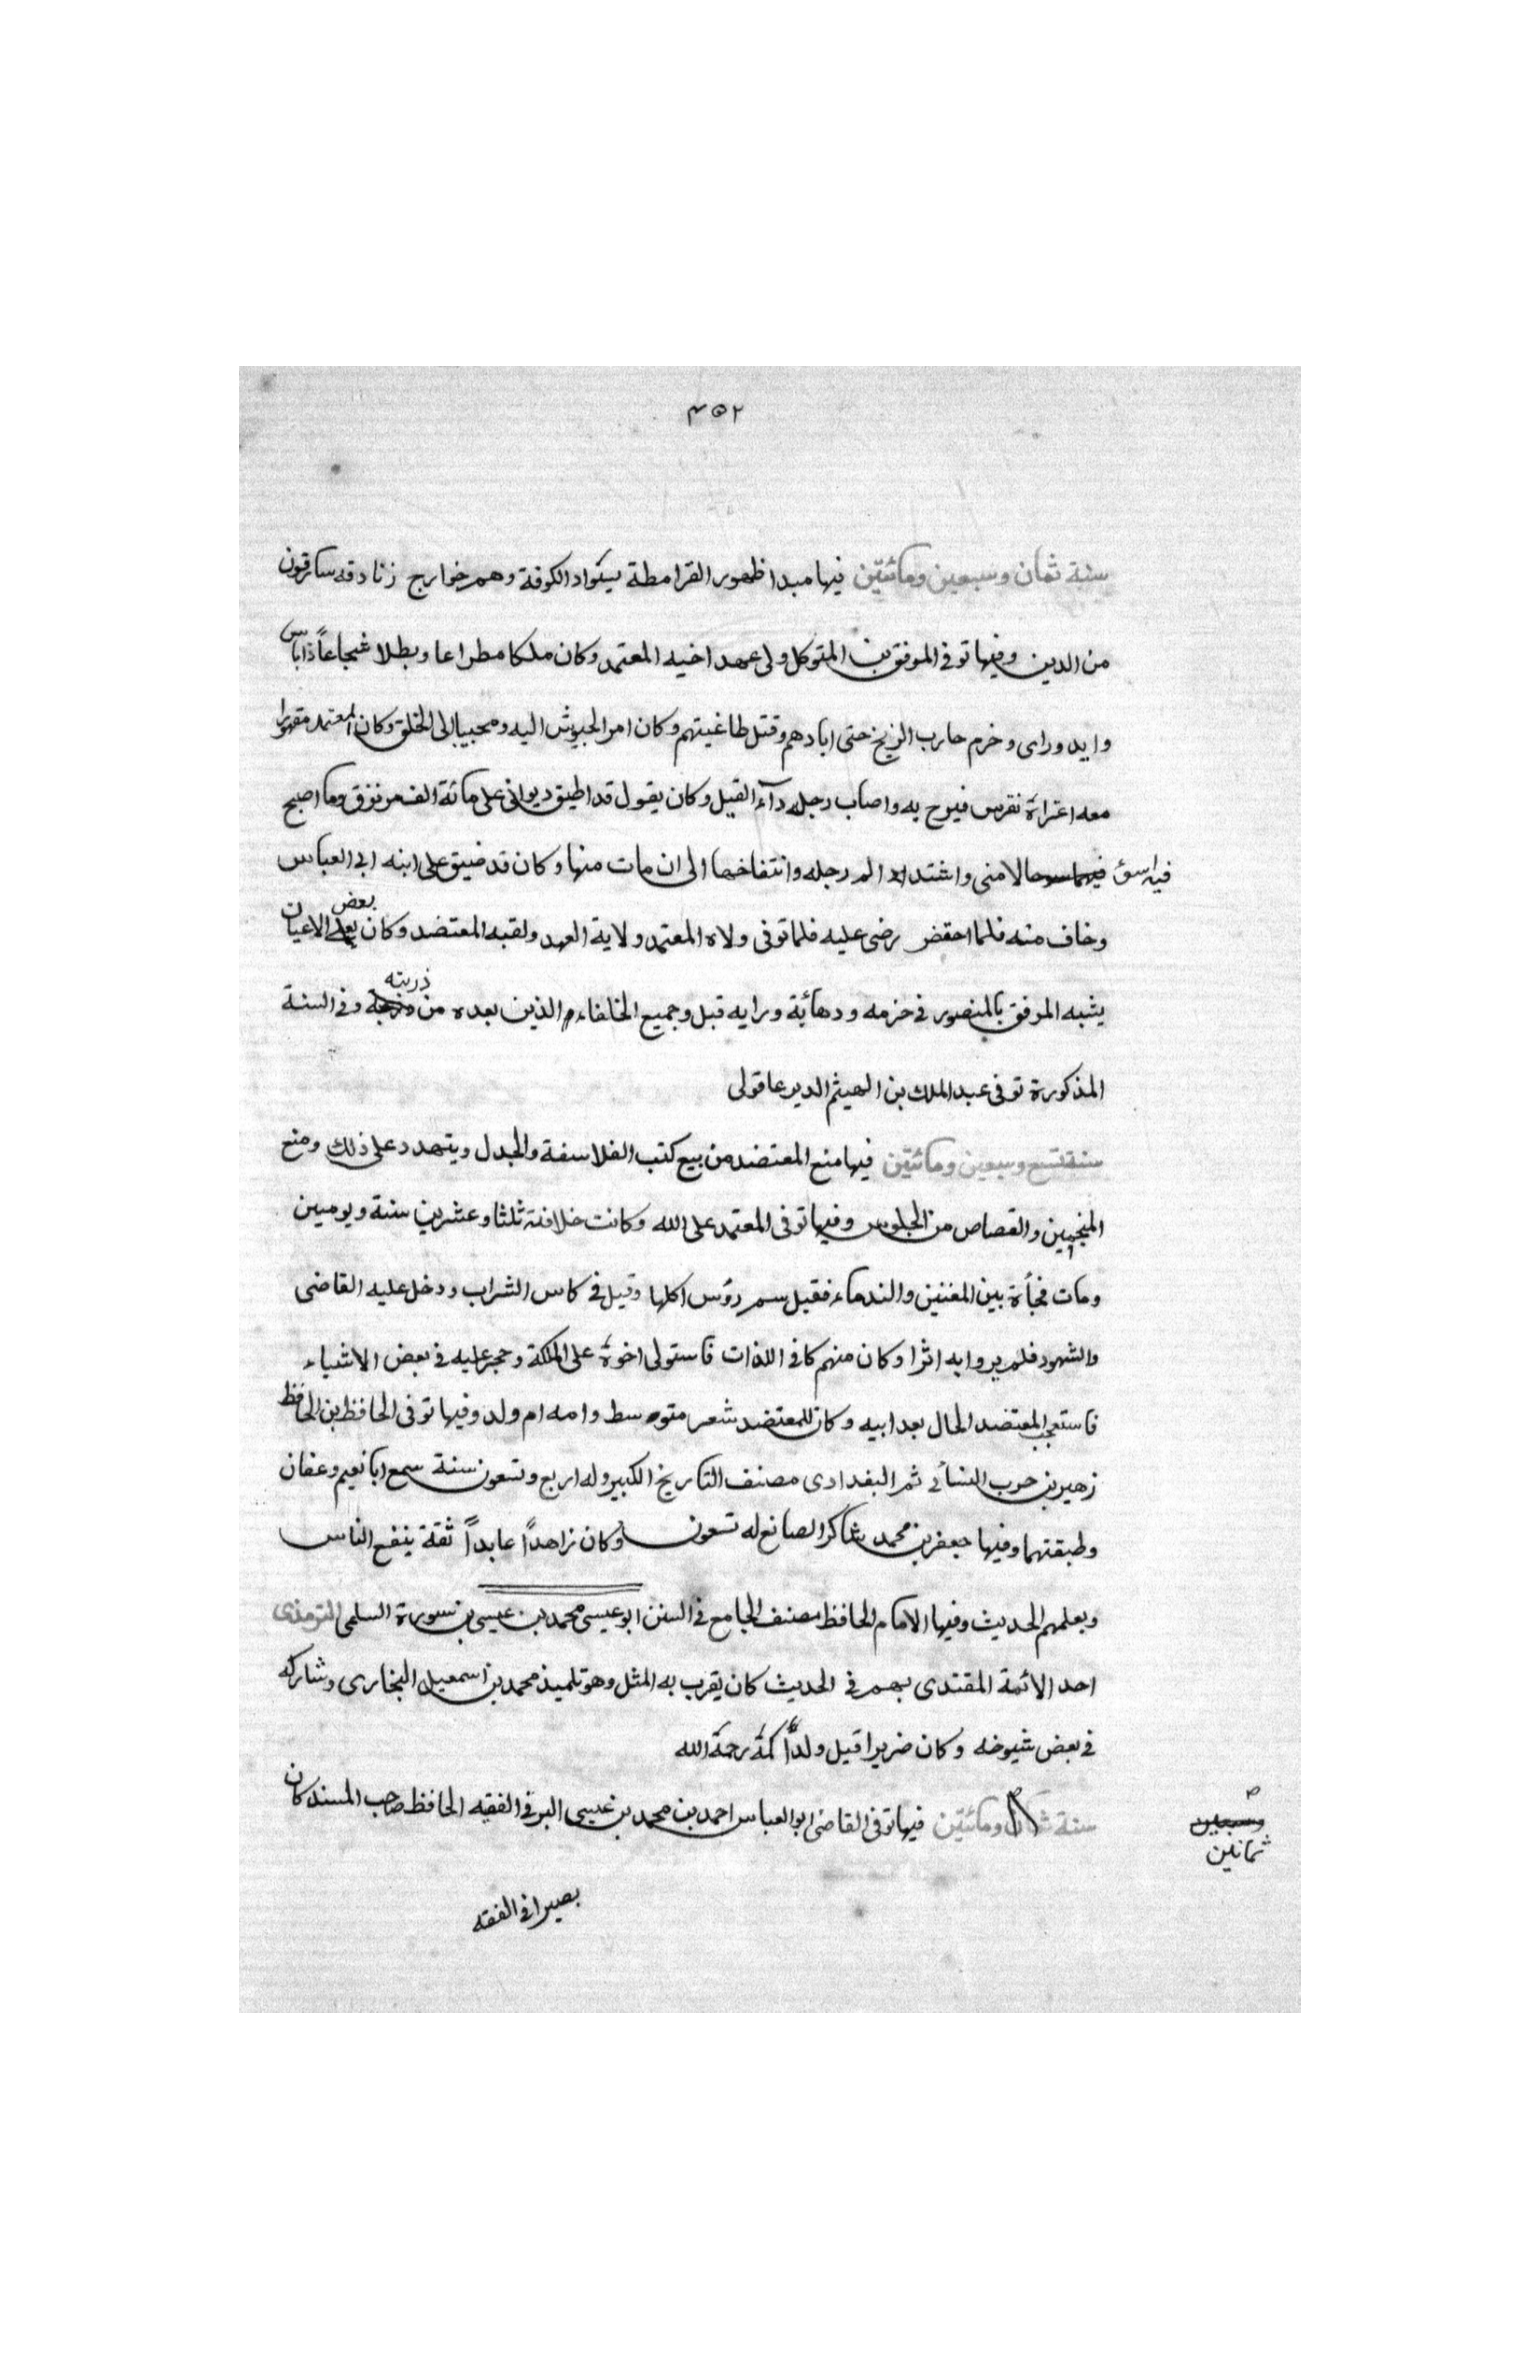 ٣٥٢
سنة ثمان وسبعين ومائتين فيها مبدا ظهور القرامطة بسواد الكوفة وهم خوارج زنادقه مارقون
من الدين وفيها توفى الموفق بن المتوكل ولى عهد اخيه المعتمد وكان ملكا مطاعا وبطلا شجاعاً ذاباس
وايد وراى وخرم حارب الزنج حتى ابادهم وقتل طاغيتهم وكان امر الجيوش اليه ومحببا الى الخلق وكان المعتمد مقهورا
معه اعتراه نقرس فبرح به واصاب رجله دآء الفيل وكان يقول قد اطبق ديوانى على مائة الف مرتزق وما اصبح
فيهم اسؤ حالا منى واشتد الم رجله وانتفاخها الى ان مات منها وكان قد ضيق على ابنه ابى العباس
وخاف منه فلما احتضر رضى عليه فلما توفى ولاه المعتمد ولاية العهد ولقبه المعتضد وكان بعض الاعيان
يشبه الموفق بالمنصور فى حزمه ودهائه ورايه قيل وجميع الخلفاء الذين بعده من ذريته وفى السنة
المذكورة توفى عبد الملك بن الهيثم الديرعاقولى
سنة تسع وسبعين ومائتين فيها منع المعتضد من بيع كتب الفلاسفة والجدل ويتهدد على ذلك ومنع
المنجمين والقصاص من الجلوس وفيها توفى المعتمد على الله وكانت خلافته ثلثا وعشرين سنة ويومين
ومات فجأة بين المغنين والندماء فقيل سم رؤس اكلها وقيل فى كاس الشراب ودخل عليه القاضى
والشهود فلم يروا به اثرا وكان منهمكا فى اللذات فاستولى اخوه على المملكة وحجر عليه فى بعض الاشياء
فاستعجب المعتضد الحال بعد ابيه وكان للمعتضد شعر متوسط وامه ام ولد وفيها توفى الحافظ بن الحافظ
زهير بن حرب النسائى ثم البغدادى مصنف التاريخ الكبير وله اربع وتسعون سنة سمع ابا نعيم وعفان
وطبقتهما وفيها جعفر بن محمد شاكر الصانع له تسعون وكان زاهداً عابداً ثقة ينفع الناس
ويعلمهم الحديث وفيها الامام الحافظ مصنف الجامع فى السنن ابو عيسى محمد بن عيسى بن سورة السلمى الترمذى
احد الائمة المقتدى بهم فى الحديث كان يقرب به المثل وهو تلميذ محمد بن اسمعيل البخارى وشاركه
فى بعض شيوخه وكان ضريرا قيل ولد اكمه رحمة الله
سنة ثمان ومائتين فيها توفى القاضى ابو العباس احمد بن محمد بن عيسى البرقى الفقيه الحافظ صاحب المسند كان
وسبعين
ثمانين
بصيرا فى الفقه